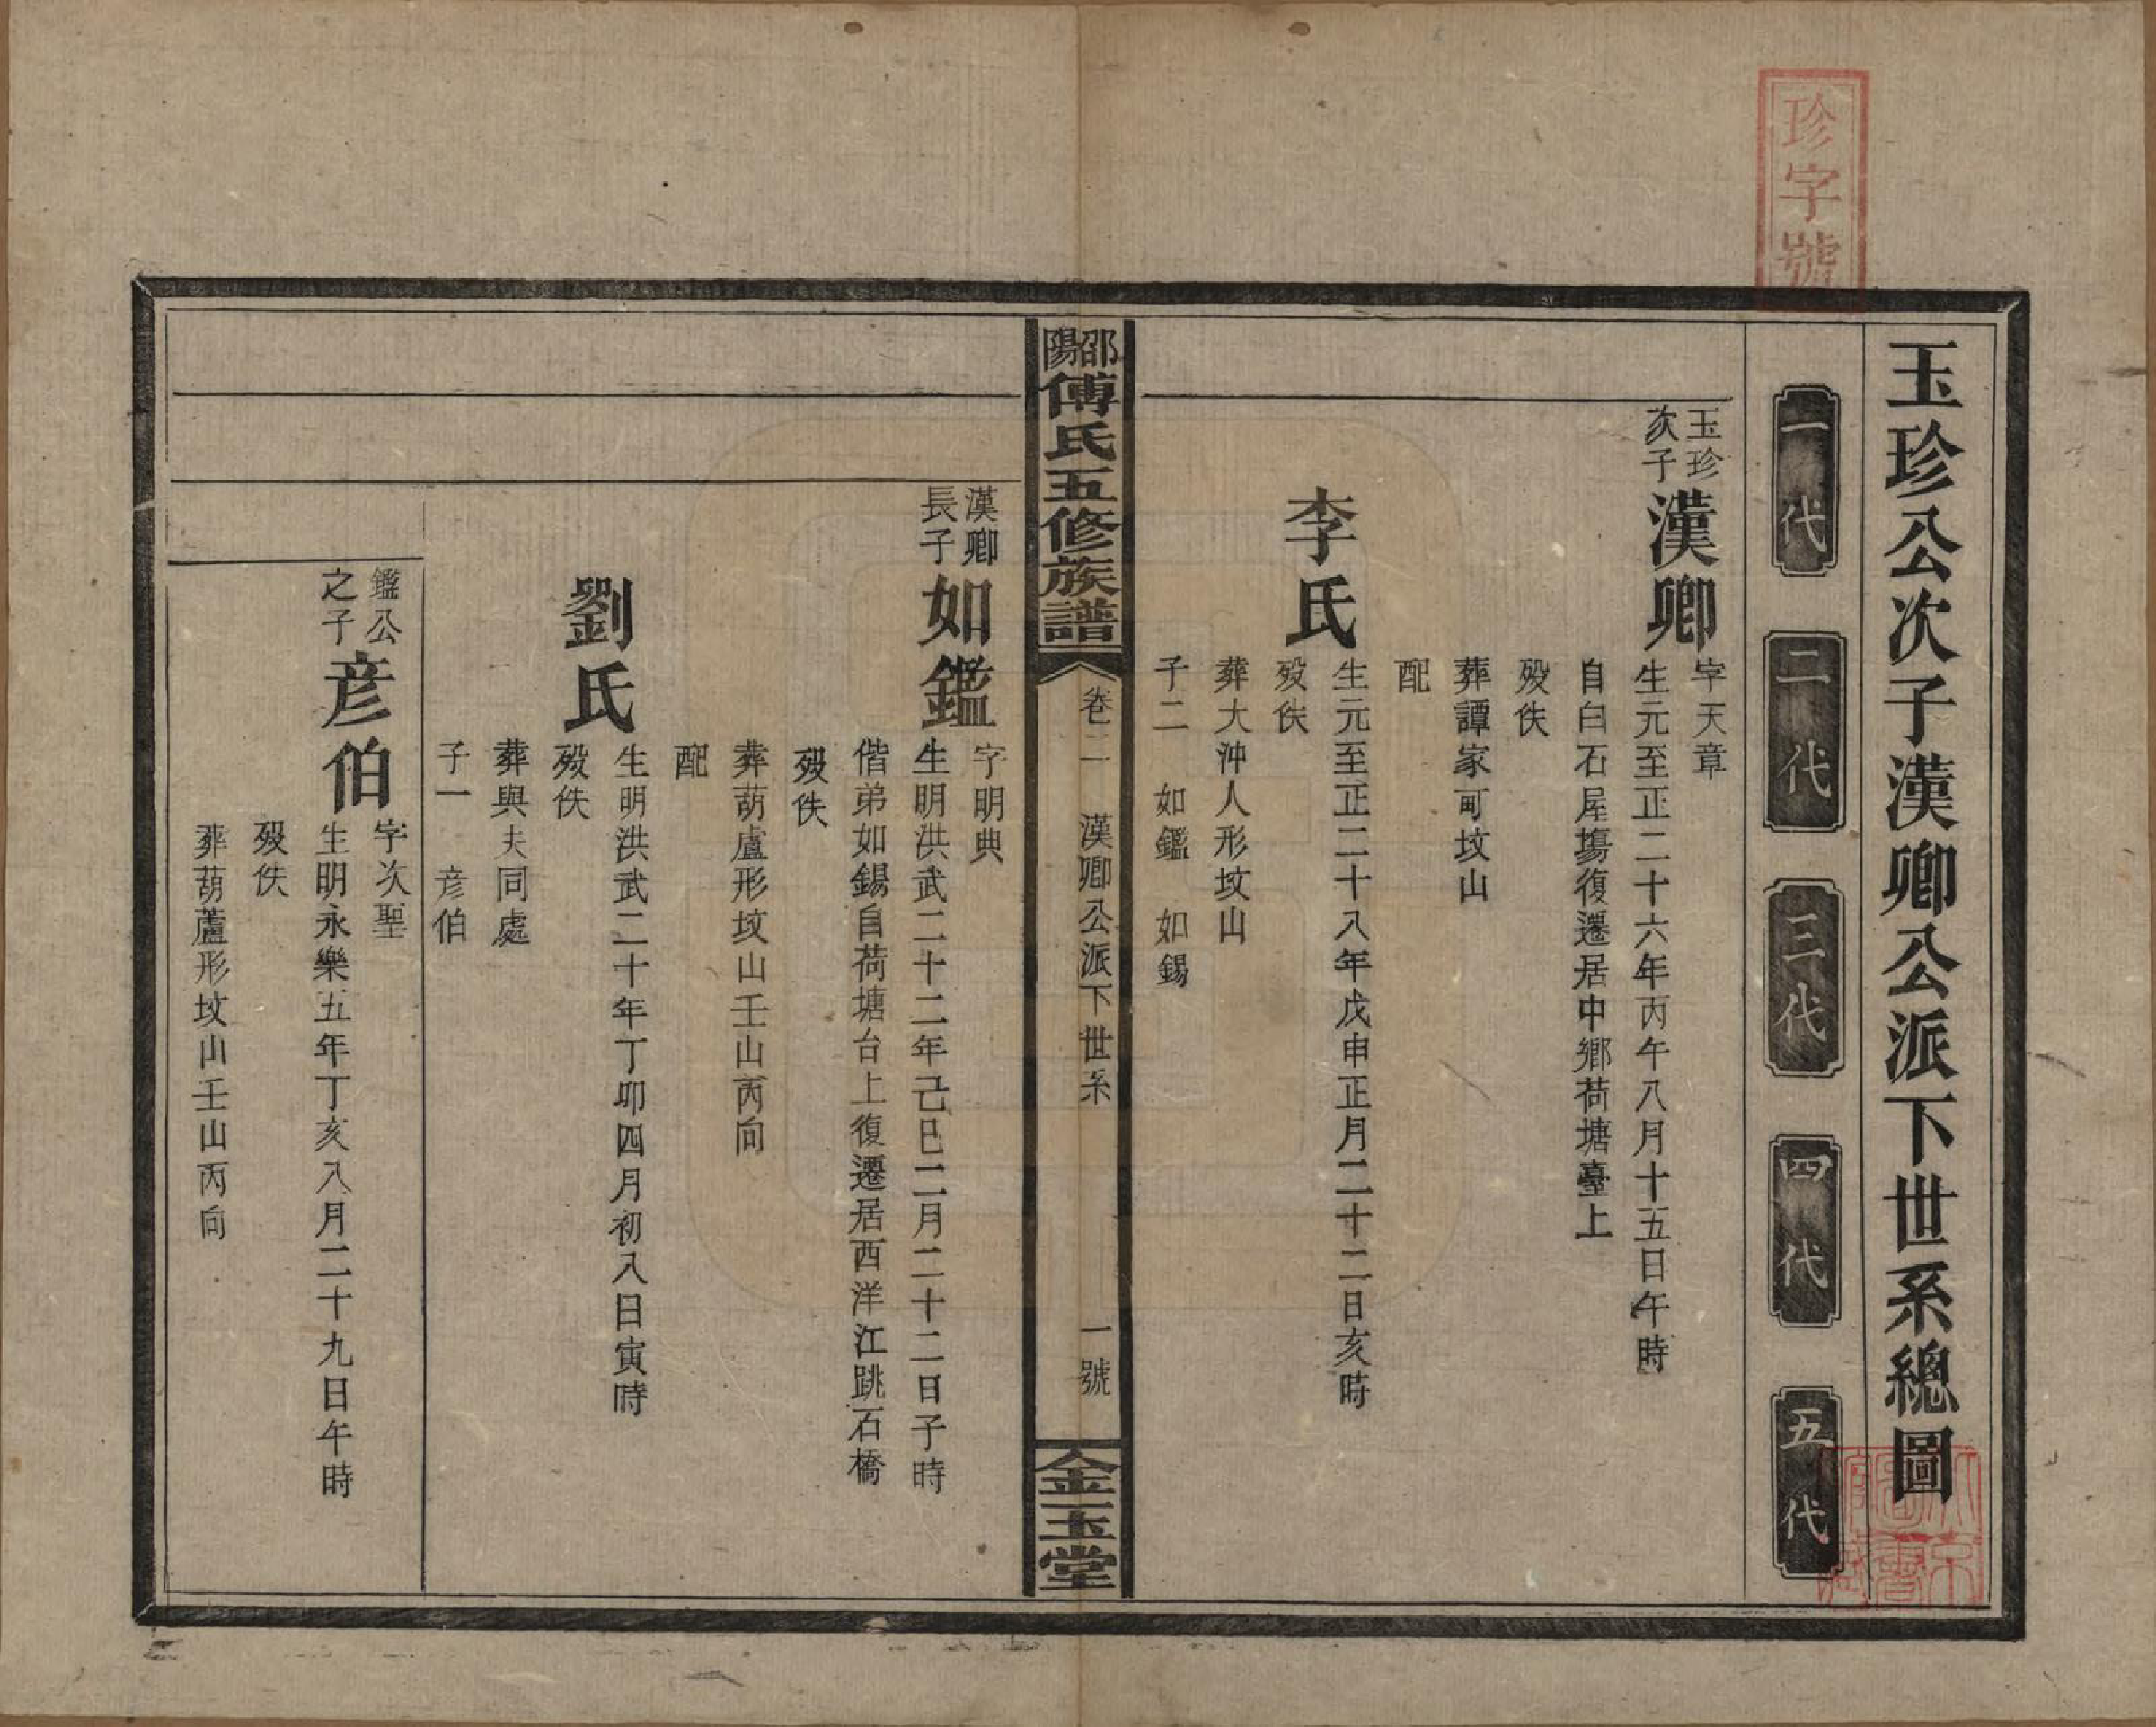 珍字號
玉珍公次子漢卿公派下世系總圖
一代
二代
三代
四代
五代
玉珍
次子
漢卿
字天章
生元至正二十六年丙午八月十五日午時
自白石屋塲復遷居中鄉荷塘臺上
歿佚
葬譚家町坟山
配
李氏
生元至正二十八年戊申正月二十二日亥時
歿佚
葬大沖人形坟山
子二 如鑑 如錫
邵陽傅氏五修族譜
卷二 漢卿公派下世系
一號
金玉堂
漢卿
長子
如鑑
字明典
生明洪武二十二年己巳二月二十二日子時
偕弟如錫自荷塘台上復遷居西洋江跳石橋
歿佚
葬葫盧形坟山壬山丙向
配
劉氏
生明洪武二十年丁卯四月初入日寅時
歿佚
葬與夫同處
子一 彥伯
鑑公
之子
彥伯
字次聖
生明永樂五年丁亥八月二十九日午時
歿佚
葬葫蘆形坟山壬山丙向